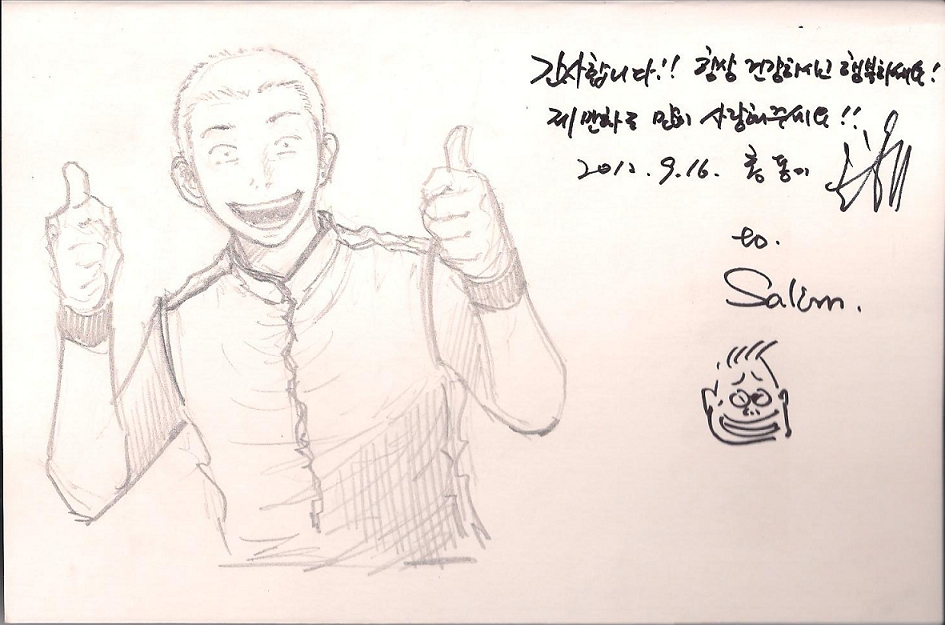 감사합니다!! 항상 건강하시고 행복하세요!
제 만화도 많이 사랑해주세요!!
2012.9.16.
to.
Salim.